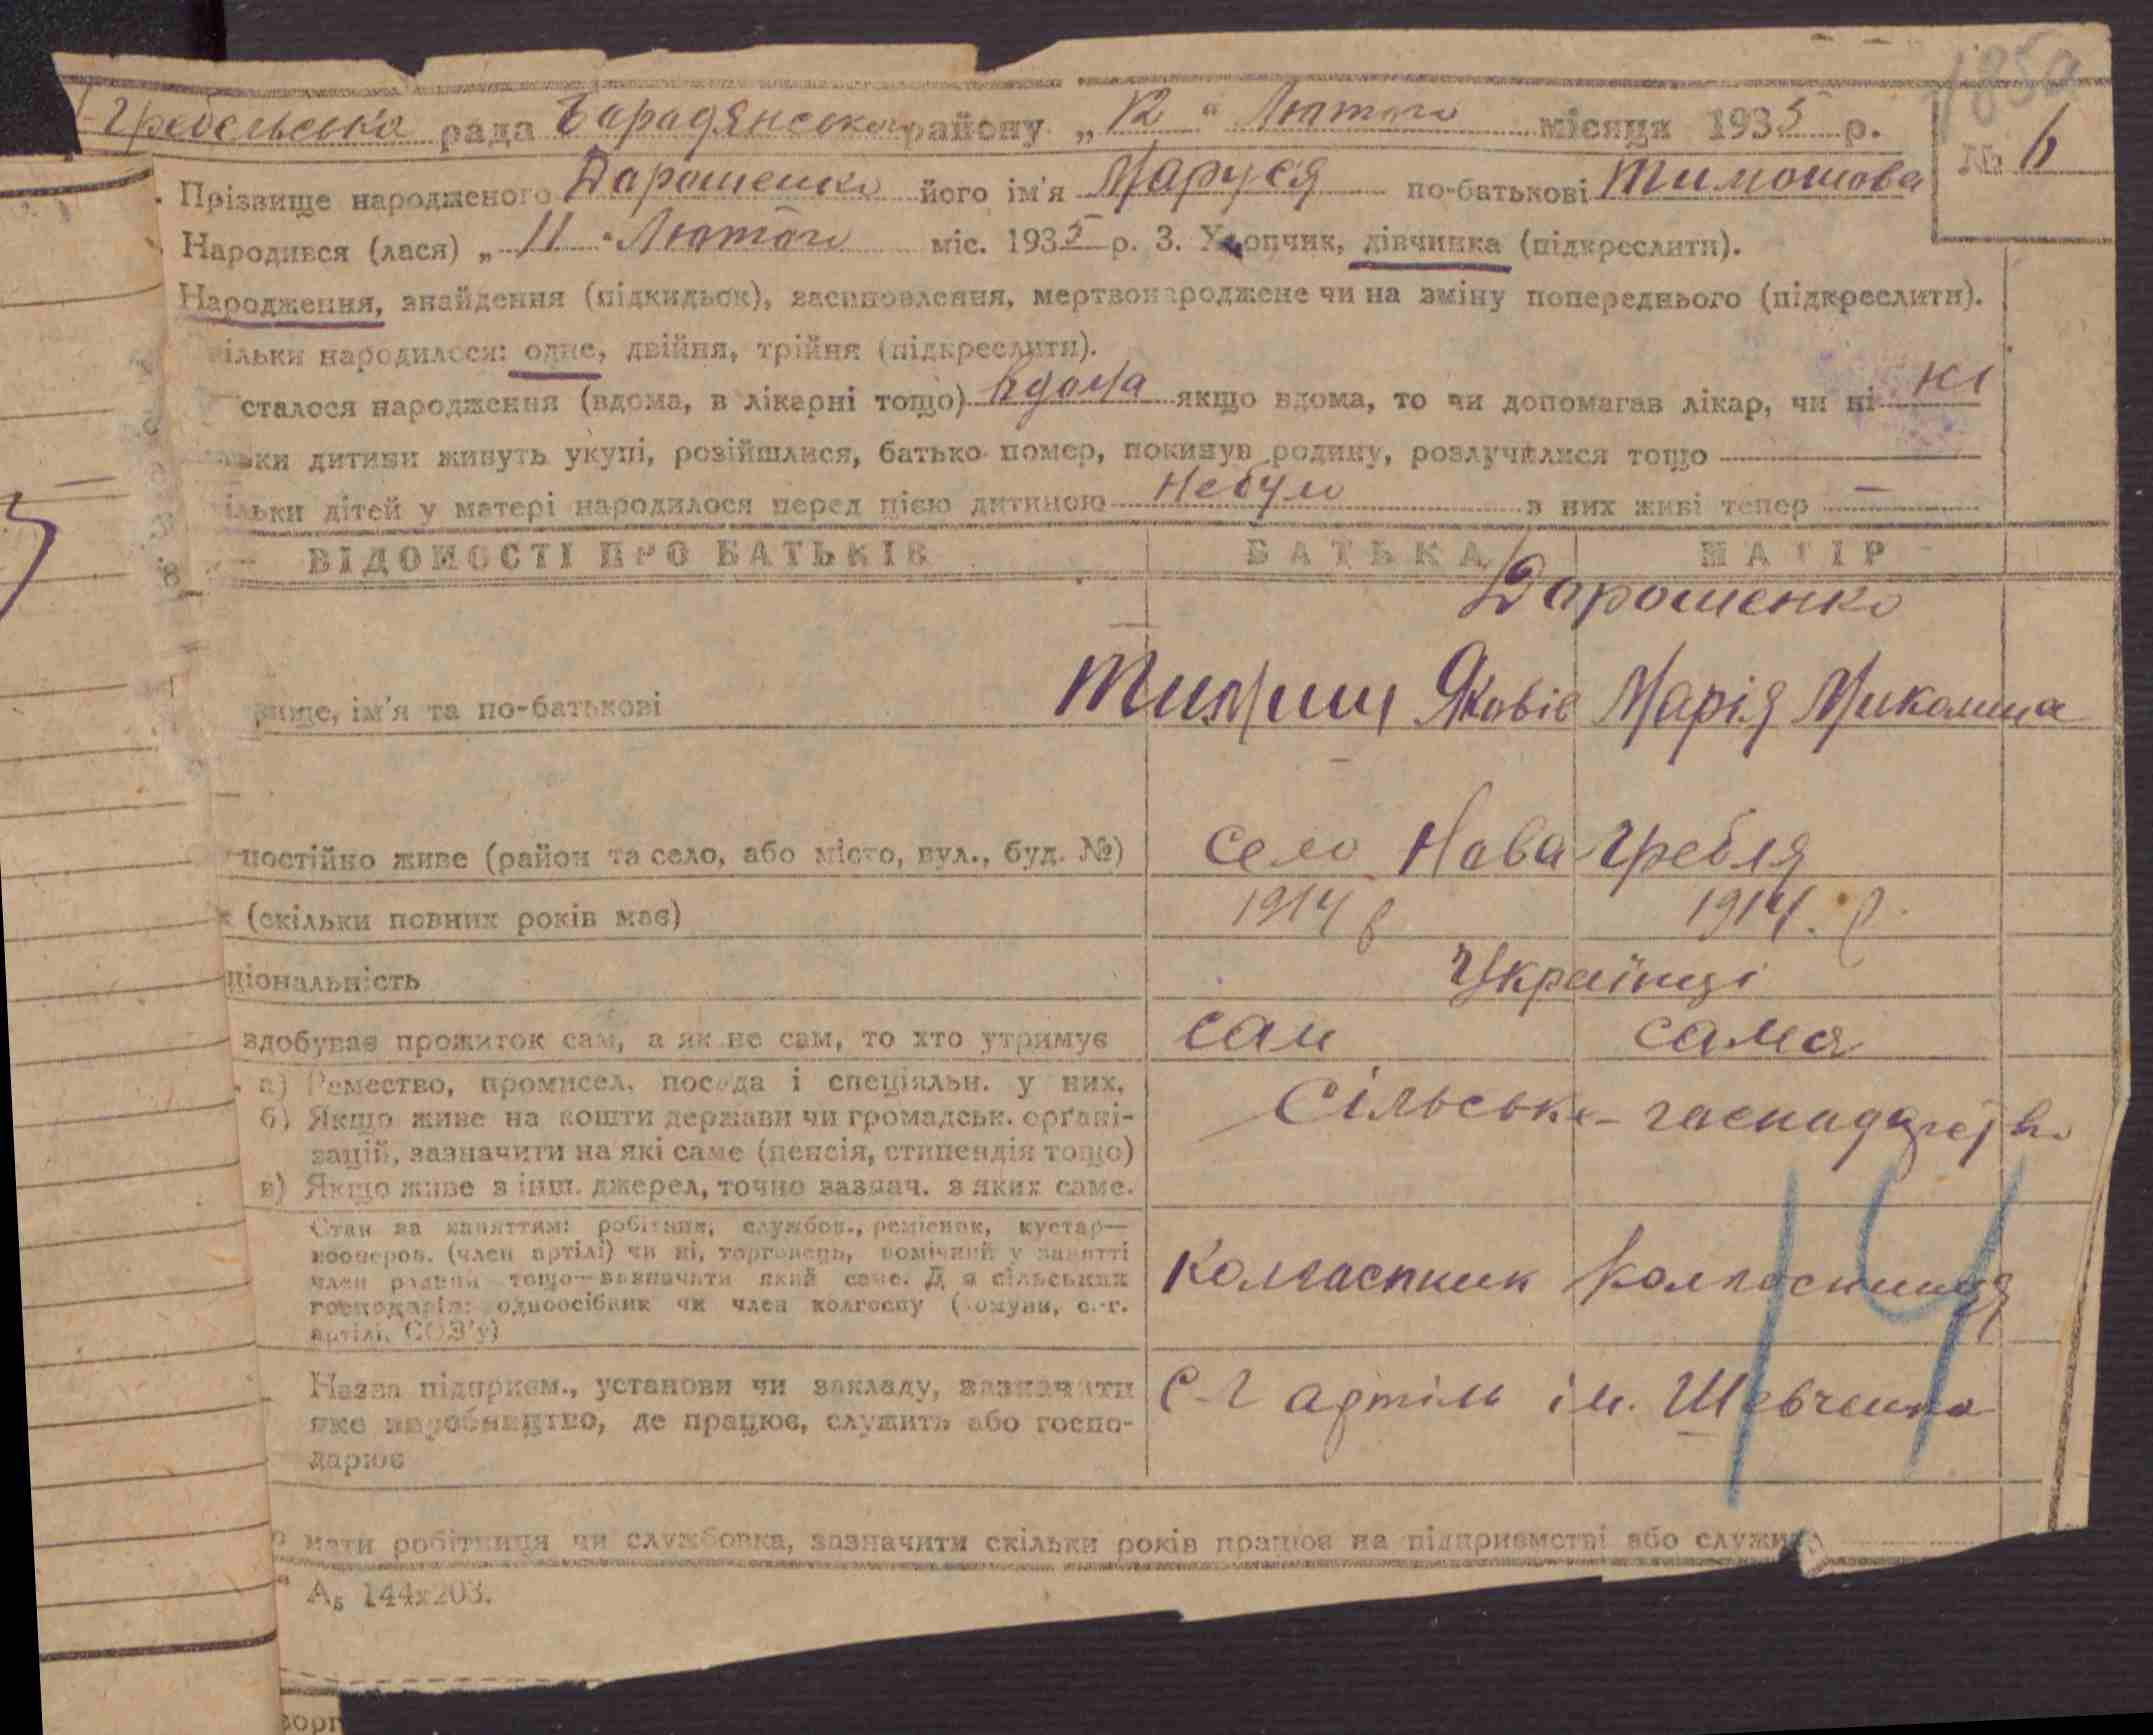 185а
-Гребельська рада Барадянськог району „ 12 " Лютого місяця 1935 р.
№ 6
Прізвище народженого Дарошенко його ім'я Маруся по-батькові Тимошова
Народився (лася) „ 11 " Лютого міс. 1935 р. 3. Хлопчик, дівчинка (підкреслити).
Народження, знайдення (підкидьок), засиновлення, мертвонароджене чи на зміну попереднього (підкреслити).
ільки народилося: одне, двійня, трійня (підкреслити).
сталося народження (вдома, в лікарні тощо) вдома якщо вдома, то чи допомагав лікар, чи ні ні
ьки дитини живуть укупі, розійшлися, батько помер, покинув родину, розлучилися тощо
ільки дітей у матері народилося перед цією дитиною Небуло в них живі тепер —
ВІДОМОСТІ ПРО БАТЬКІВ БАТЬКА МАТІР
Дарошенко
вище, ім'я та по-батькові Тимиш Яковів Марія Миколина
постійно живе (район та село, або місто, вул., буд. №) село Нова-Гребля
к (скільки повних років має) 1914 р 1914. р.
ціональність Українці
здобуває прожиток сам, а як не сам, то хто утримує сам сама
а) Ремество, промисел, посада і спеціяльн. у них.
б) Якщо живе на кошти держави чи громадськ. орґані-
зацій, зазначити на які саме (пенсія, стипендія тощо)
в) Якщо живе з інш. джерел, точно зазнач. з яких саме.
Сільське-гаспадарство
Стан за заняттям: робітник, службов., ремісник, кустар—
кооперов. (член артілі) чи ні, торговець, помічний у занятті
член родини тощо—зазначити який саме. Для сільських
господарів: одноосібник чи член колгоспу (комуни, с.-г.
артілі, СОЗ'у)
Колгаспник Колгоспниця
14
Назва підприєм., установи чи закладу, зазначити
яке виробництво, де працює, служить або госпо-
дарює
С-Г артіль ім. Шевченка
о мати робітниця чи службовка, зазначити скільки років працює на підприємстві або служить
А₅ 144х203.
ворг